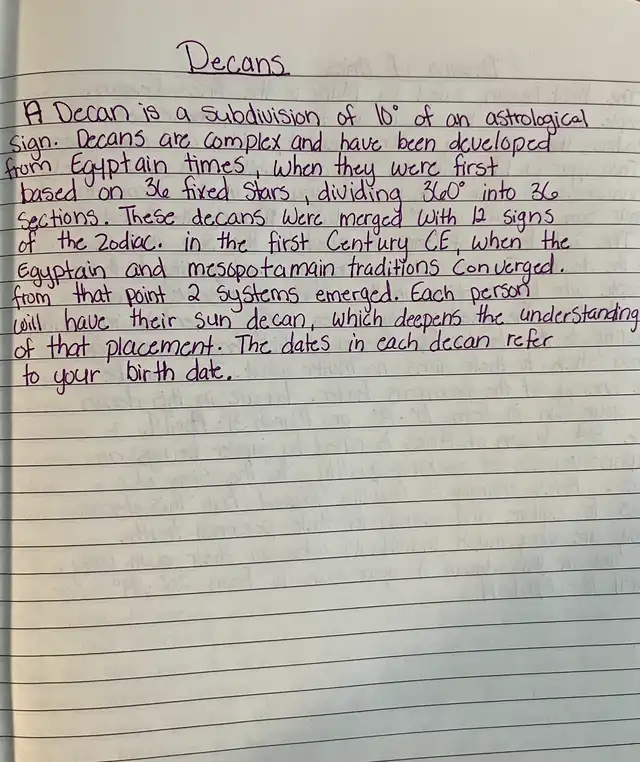 Decans
A Decan is a subdivision of 10° of an astrological
sign. Decans are complex and have been developed
from Egyptain times, when they were first
based on 36 fixed stars, dividing 360° into 36
sections. These decans were merged with 12 signs
of the zodiac. in the first Century CE, when the
Egyptain and mesopotamain traditions converged.
from that point 2 systems emerged. Each person
will have their sun decan, which deepens the understanding
of that placement. The dates in each decan refer
to your birth date.